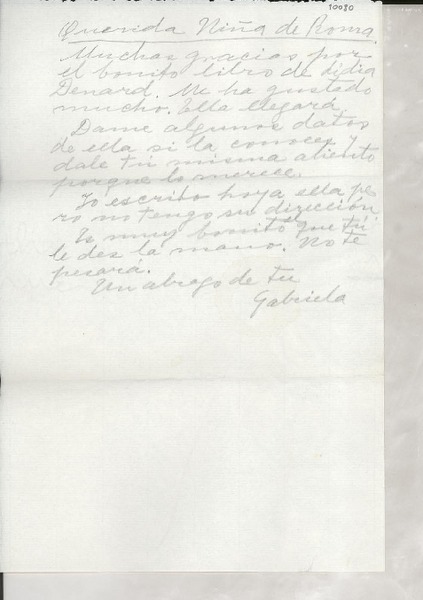 10080
Querida Niña de Roma.
Muchas gracias por
el bonito libro de Lidia
Denard. Me ha gustado
mucho. Ella llegará.
Dame algunos datos
de ella si la conoces y
dale tú misma aliento
porque lo merece.
Yo escribo hoy a ella pe-
ro no tengo su dirección.
Es muy bonito el que tú
le des la mano. No te
pesará.
Un abrazo de tu
Gabriela